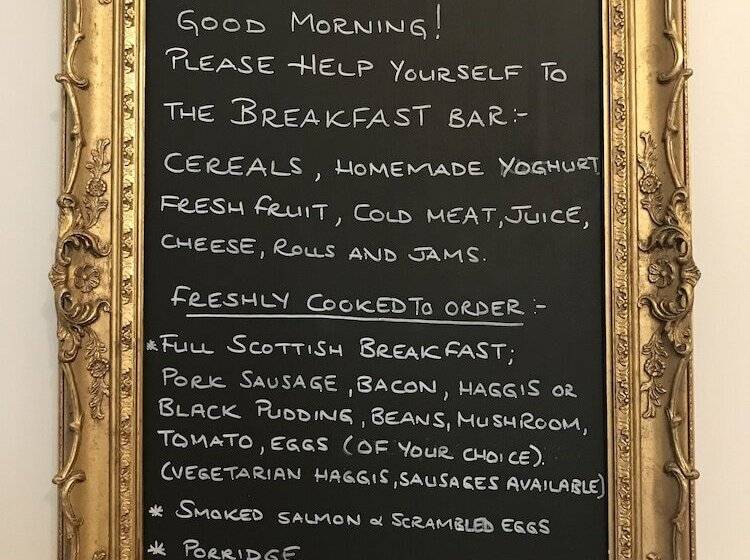 GOOD MORNING!
PLEASE HELP YOURSELF TO
THE BREAKFAST BAR:-
CEREALS, HOMEMADE YOGHURT
FRESH FRUIT, COLD MEAT, JUICE,
CHEESE, ROLLS AND JAMS.
FRESHLY COOKED TO ORDER:-
*FULL SCOTTISH BREAKFAST;
PORK SAUSAGE, BACON, HAGGIS OR
BLACK PUDDING, BEANS, MUSHROOM,
TOMATO, EGGS (OF YOUR CHOICE).
(VEGETARIAN HAGGIS, SAUSAGES AVAILABLE)
* SMOKED SALMON & SCRAMBLED EGGS
* PORRIDGE